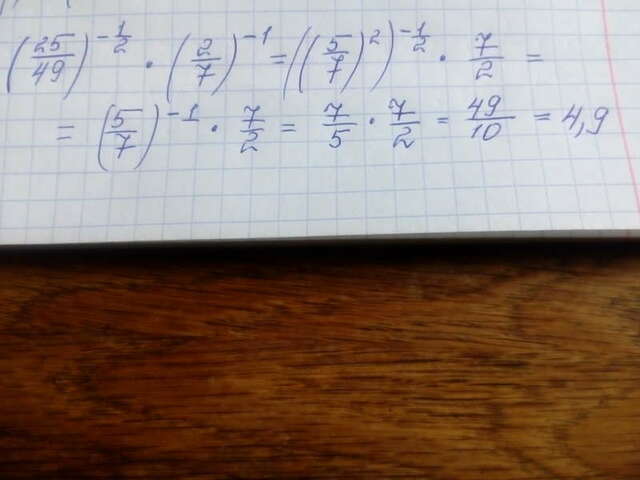 (25/49)^(-1/2) · (2/7)^(-1) = ((5/7)^2)^(-1/2) · 7/2 =
= (5/7)^(-1) · 7/2 = 7/5 · 7/2 = 49/10 = 4,9